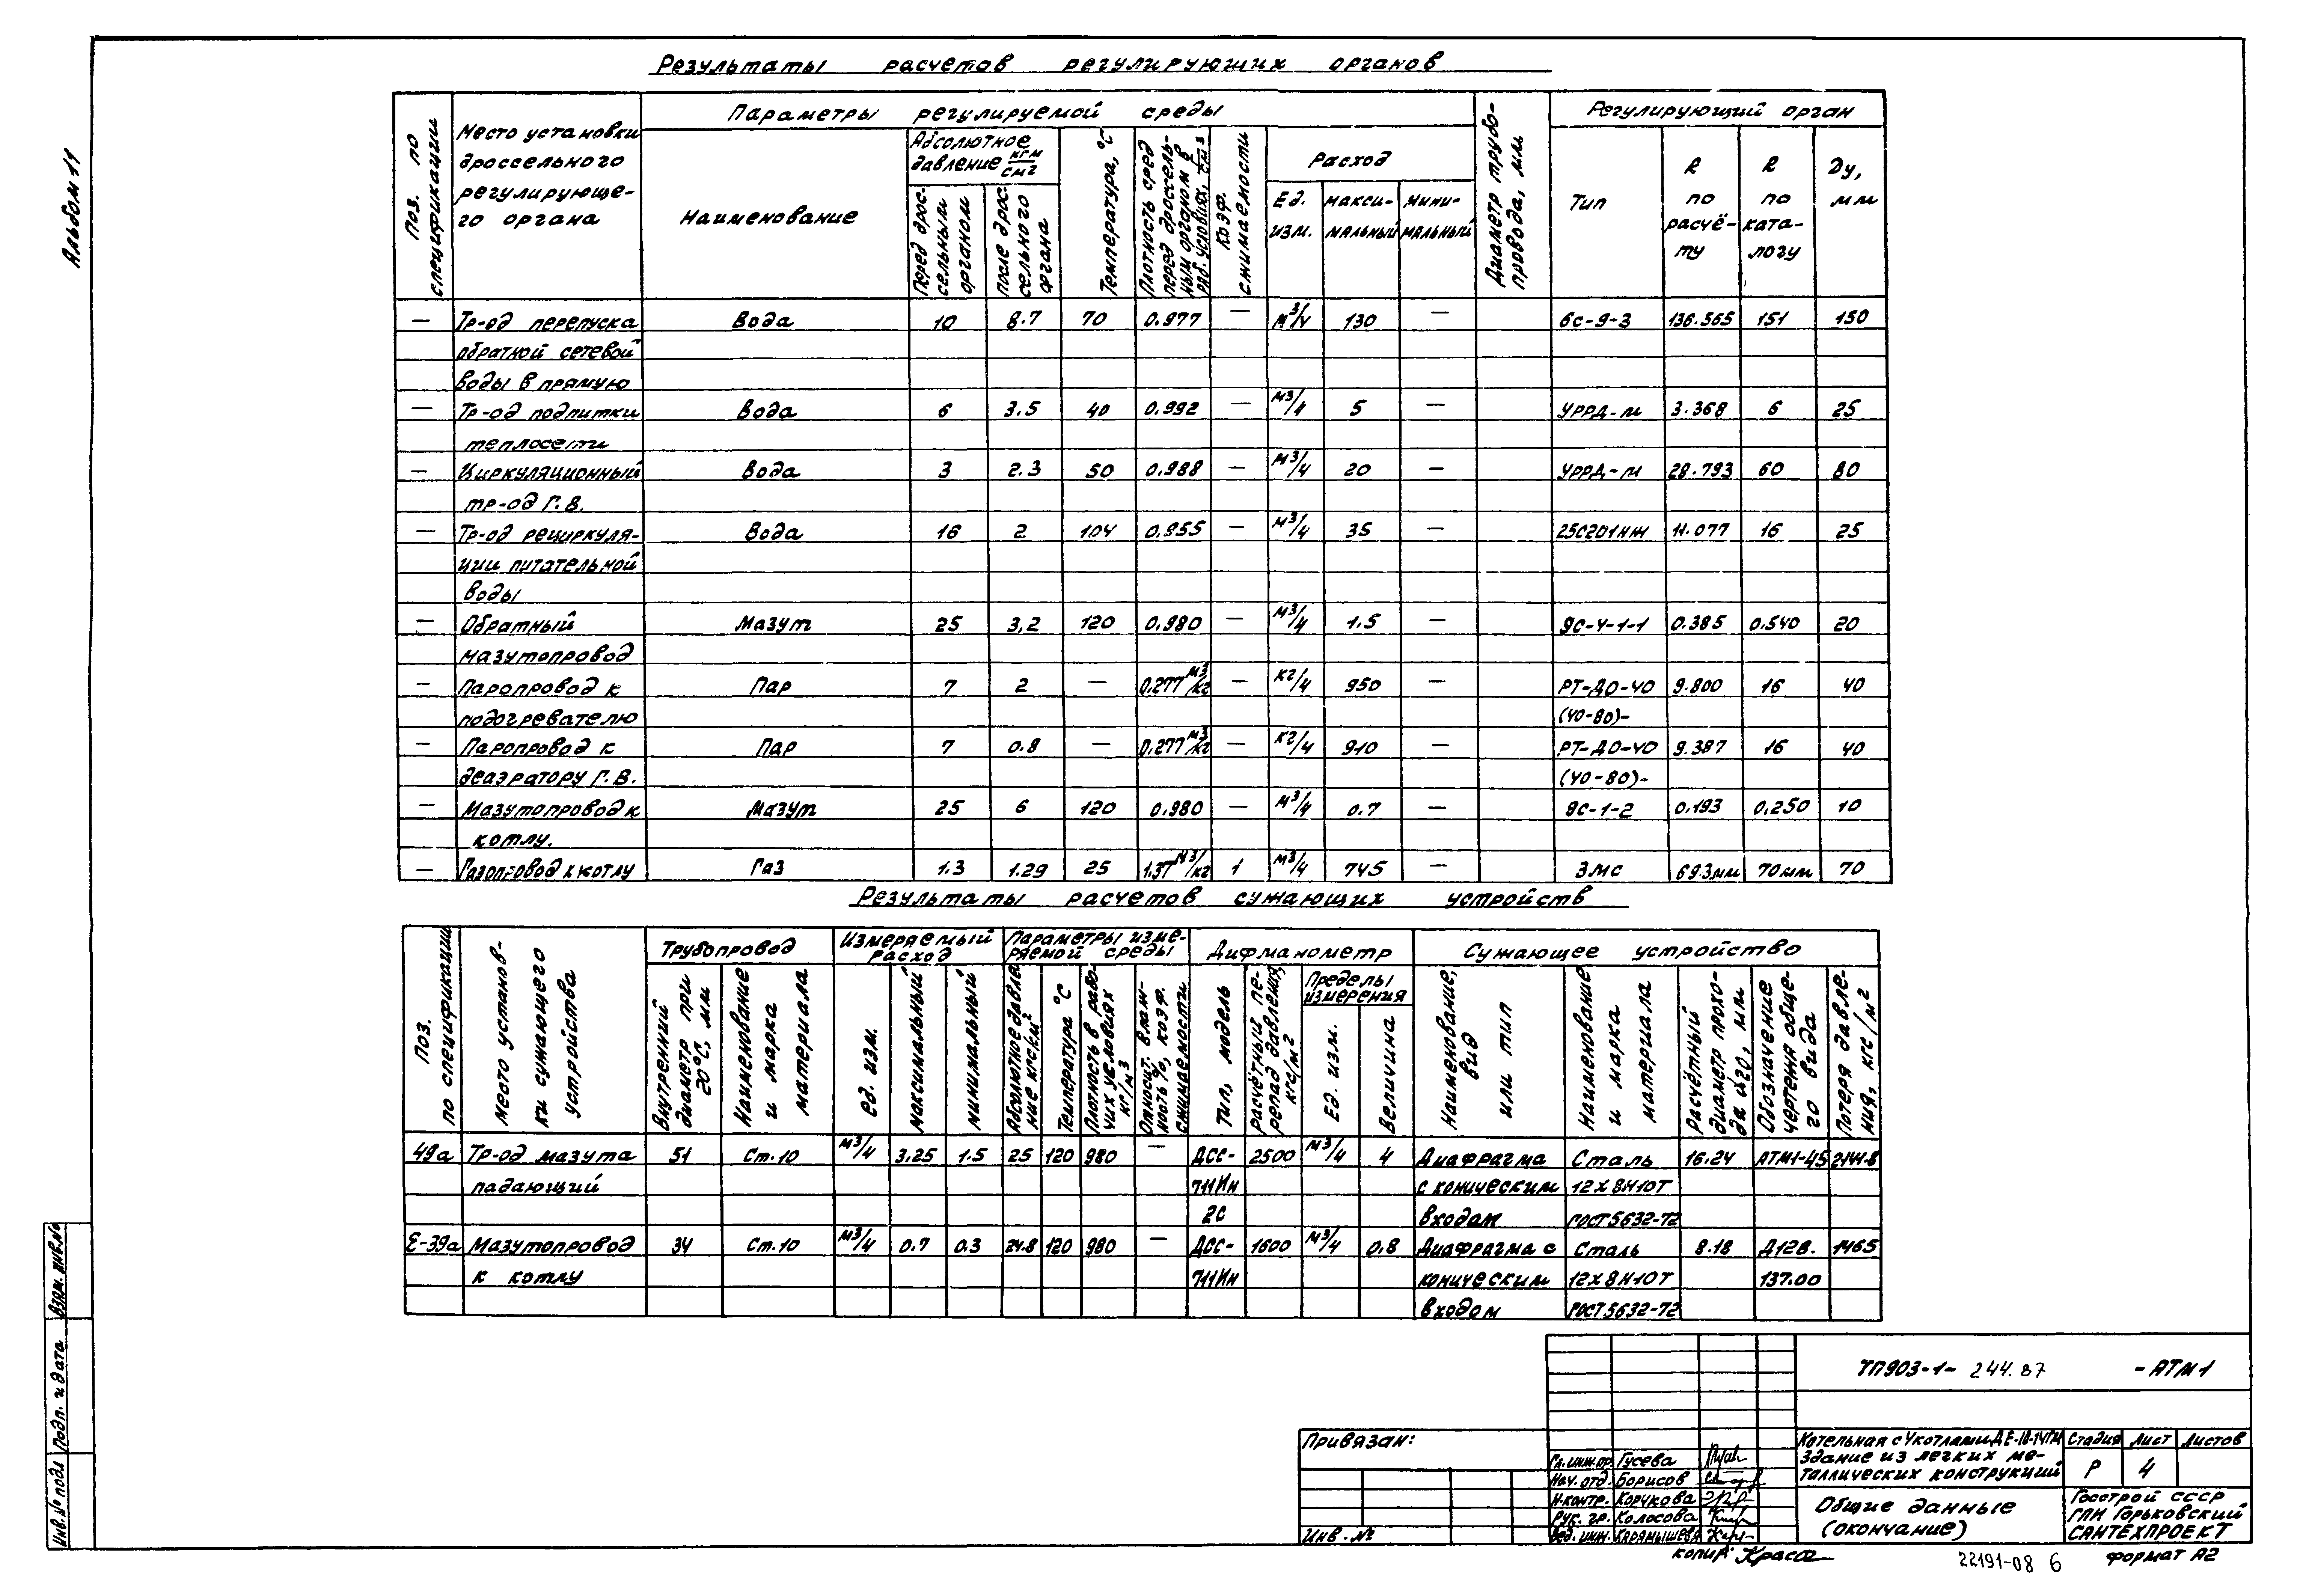 Альбом 11
Результаты расчетов регулирующих органов
Поз. по спецификации
Место установки дроссельного регулирующего органа
Параметры регулируемой среды
Наименование
Абсолютное давление кгм/см2
Перед дроссельным органом
после дроссельного органа
Температура, °С
Плотность сред перед дроссельным органом в раб. условиях,
Коэф. сжимаемости
Расход
Ед. изм.
максимальный
минимальный
Диаметр трубопровода, мм
Регулирующий орган
Тип
R по расчёту
R по каталогу
Ду, мм
— Тр-од перепуска Вода 10 8.7 70 0.977 — м3/ч 130 — 6с-9-3 136.565 151 150
обратной сетевой
воды в прямую
— Тр-од подпитки Вода 6 3.5 40 0.992 — м3/ч 5 — УРРД-м 3.368 6 25
теплосети
— Циркуляционный Вода 3 2.3 50 0.988 — м3/ч 20 — УРРД-м 28.793 60 80
тр-од Г.В.
— Тр-од рециркуля- Вода 16 2 104 0.955 — м3/ч 35 — 25с201нж 11.077 16 25
ции питательной
воды
— Обратный Мазут 25 3,2 120 0.980 — м3/ч 1.5 — 9с-4-1-1 0.385 0.540 20
мазутопровод
— Паропровод к Пар 7 2 — 0.277 м3/кг — кг/ч 950 — РТ-ДО-40 9.800 16 40
подогревателю (40-80)-
— Паропровод к Пар 7 0.8 — 0.277 м3/кг — кг/ч 910 — РТ-ДО-40 9.387 16 40
деаэратору Г.В. (40-80)-
— Мазутопровод к Мазут 25 6 120 0.980 — м3/ч 0.7 — 9с-1-2 0.193 0.250 10
котлу.
— Газопровод к котлу Газ 1.3 1.29 25 1.37 м3/кг 1 м3/ч 745 — ЗМС 69.3мм 70мм 70
Результаты расчетов сужающих устройств
Поз. по спецификации
место установки сужающего устройства
Трубопровод
Внутренний диаметр при 20°С, мм
Наименование и марка материала
Измеряемый расход
ед. изм.
максимальный
минимальный
Параметры измеряемой среды
Абсолютное давление кгс/см2
Температура °С
Плотность в рабочих условиях кг/м3
Относит. влажность %, коэф. сжимаемости
Дифманометр
Тип, модель
Расчётный перепад давления, кгс/м2
Пределы измерения
Ед. изм.
Величина
Сужающее устройство
Наименование, вид или тип
Наименование и марка материала
Расчётный диаметр прохода d20, мм
Обозначение чертежа общего вида
Потеря давления, кгс/м2
49а Тр-од мазута 51 Ст.10 м3/ч 3.25 1.5 25 120 980 — ДСС- 2500 м3/ч 4 Диафрагма Сталь 16.24 АТМ1-45 2144.8
падающий 711Ин с коническим 12Х8Н10Т
2С входом ГОСТ5632-72
Е-39а Мазутопровод 34 Ст.10 м3/ч 0.7 0.3 24.8 120 980 — ДСС- 1600 м3/ч 0.8 Диафрагма с Сталь 8.18 Д12В. 1465
к котлу 711Ин коническим 12Х8Н10Т 137.00
входом ГОСТ5632-72
Взам. инв.№
Подп. и дата
Инв.№ подл
Привязан:
Инв. №
Гл. инж. пр Гусева
Нач. отд. Борисов
Н.контр. Корчкова
Рук. гр. Колосова
Вед. инж. Карамышева
ТП903-1-244.87 -АТМ1
Котельная с 4 котлами ДЕ-10-14ГМ
Здание из легких ме-
таллических конструкций
Стадия Лист Листов
Р 4
Общие данные
(окончание)
Госстрой СССР
ГПИ Горьковский
САНТЕХПРОЕКТ
копир.
22191-08 6
формат А2